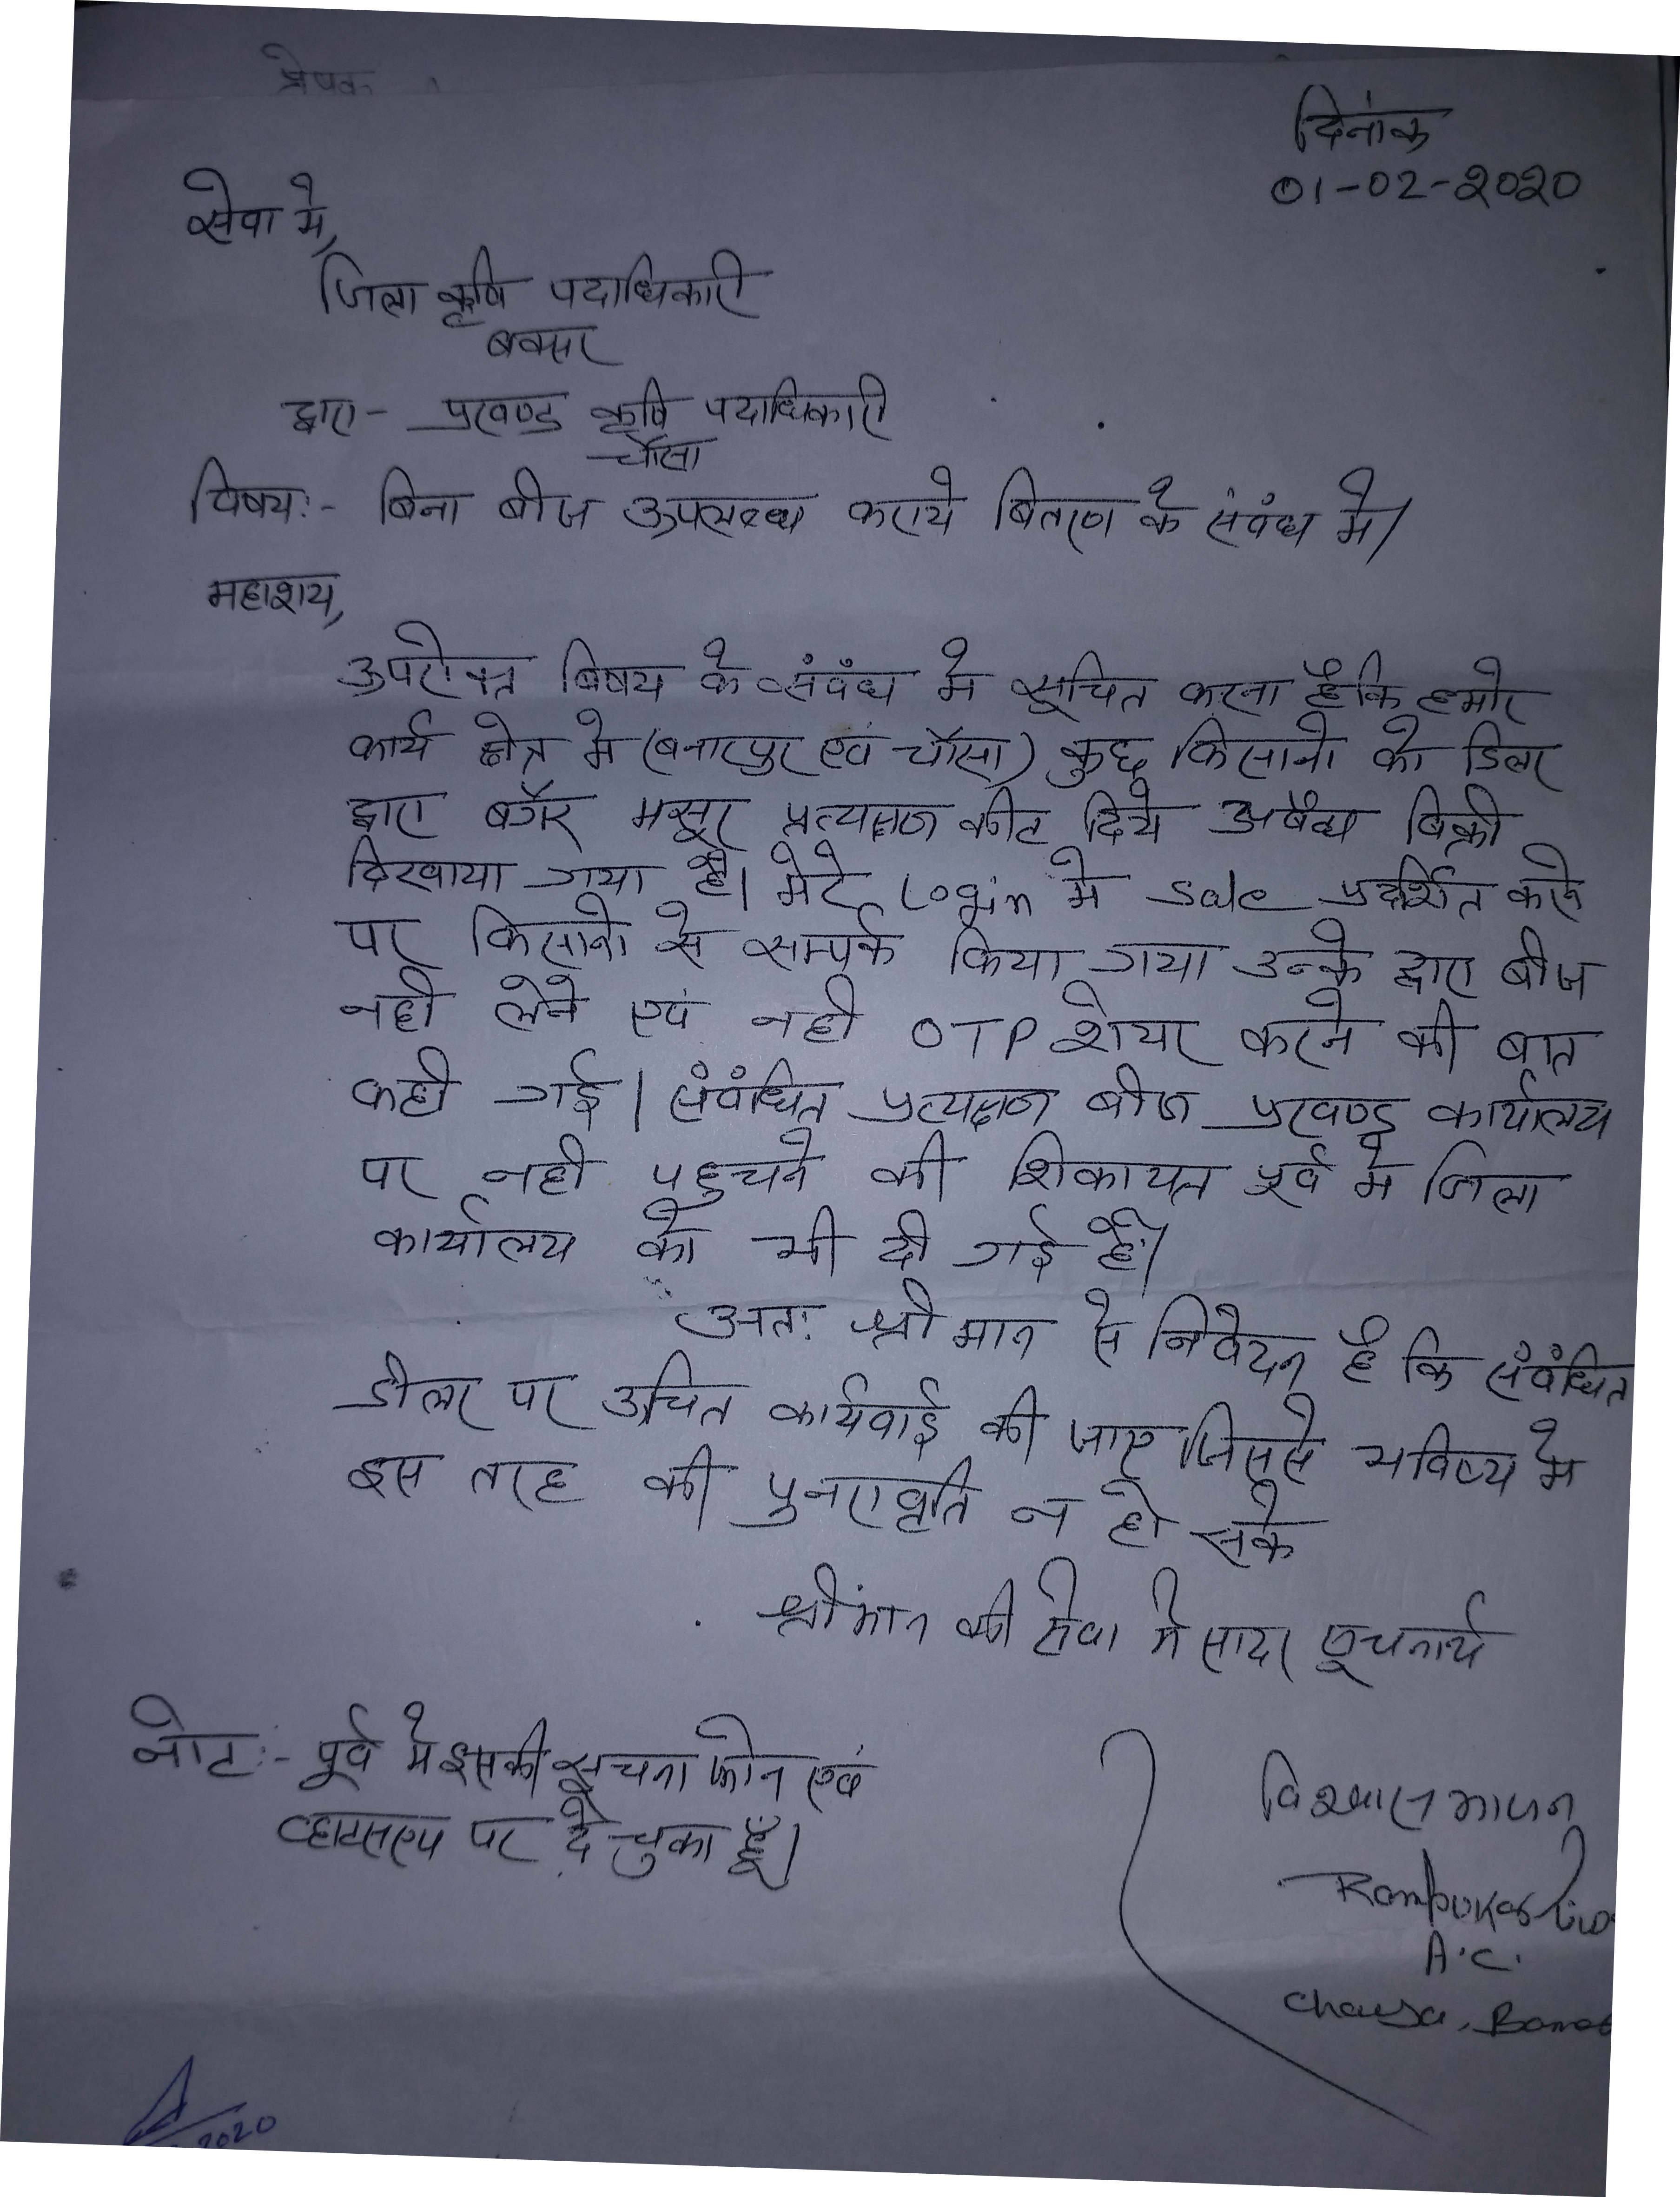 प्रेषक
दिनांक
01-02-2020
सेवा में,
जिला कृषि पदाधिकारी
बक्सर
द्वारा - प्रखण्ड कृषि पदाधिकारी
चौसा
विषय:- बिना बीज उपलब्ध कराये बितरण के संबंध मे।
महाशय,
उपरोक्त बिषय के संबंध मे सूचित करना है कि हमारे
कार्य क्षेत्र मे (बनारपुर एवं चौसा) कुछ किसानो को डिलर
द्वारा बगैर मसूर प्रत्यक्षण कीट दिये अवैध बिक्री
दिखाया गया है। मेरे Login मे sale प्रदर्शित करने
पर किसानो से सम्पर्क किया गया उनके द्वारा बीज
नही लेने एवं नही OTP शेयर करने की बात
कही गई। संबंधित प्रत्यक्षण बीज प्रखण्ड कार्यालय
पर नही पहुचने की शिकायत पूर्व मे जिला
कार्यालय को भी दी गई है।
अतः श्री मान से निवेदन है कि संबंधित
डीलर पर उचित कार्यवाई की जाए जिससे भविष्य मे
इस तरह की पुनरावृति न हो सके
श्रीमान की सेवा मे सादर सूचनार्थ
नोट:- पूर्व मे इसकी सूचना फोन एवं
व्हाटसएप पर दे चुका हूँ।
विश्वास भाजन
A.C.
Chausa,
2020